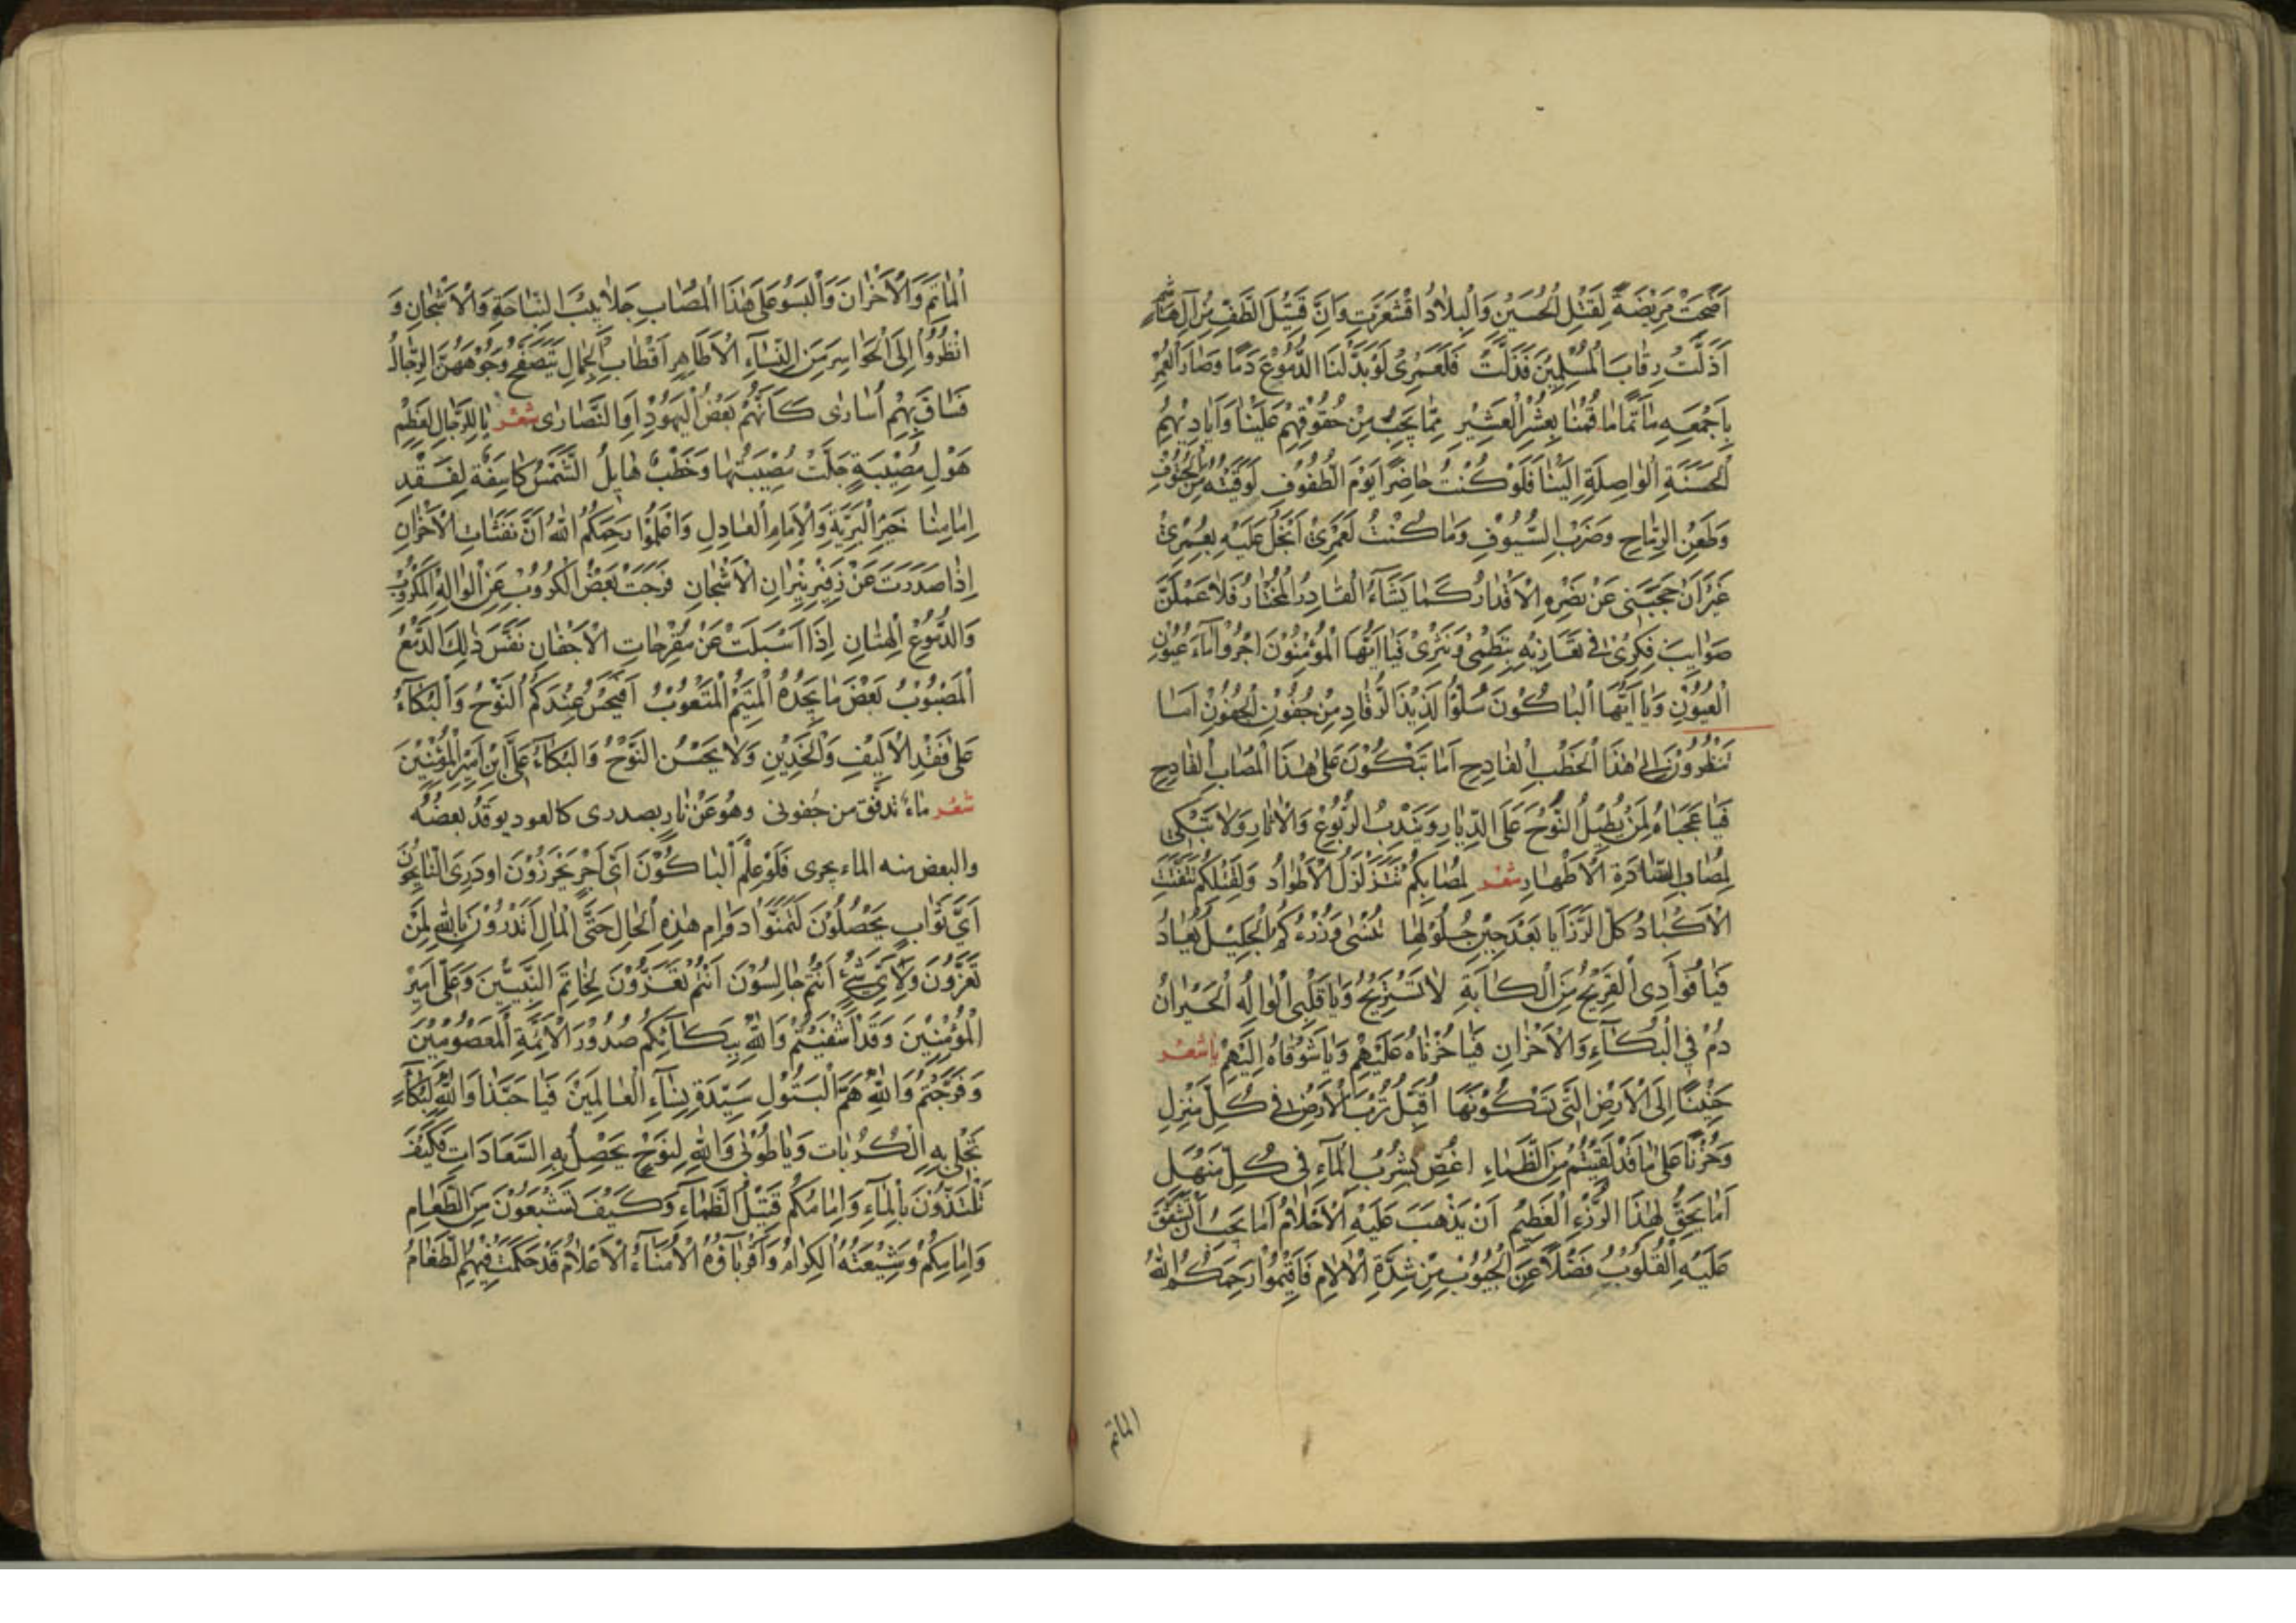 اَضْحَتْ مَرِيْضَةً لِقَتْلِ الْحُسَيْنِ وَالْبِلَادُ اقْشَعَرَّتِ وَاَنَّ قَتِيْلَ الطَّفِّ مِنْ اٰلِ هَاشِمٍ
اَذَلَّتْ رِقَابَ الْمُسْلِمِيْنَ فَذَلَّتْ فَلَعَمْرِىْ لَوْ بَدَّلْنَا الدُّمُوْعَ دَمًا وَصَارَ الْعُمْرُ
بِاَجْمَعِهِ مَاْتَمًا مَا قُمْنَا بِعُشْرِ الْعَشِيْرِ مِمَّا يَجِبُ مِنْ حُقُوْقِهِمْ عَلَيْنَا وَاَيَادِيْهِمُ
الْحَسَنَةِ الْوَاصِلَةِ اِلَيْنَا فَلَوْ كُنْتُ حَاضِرًا يَوْمَ الطُّفُوْفِ لَوَقَيْتُهُ مِنَ الْحُتُوْفِ
وَطَعْنِ الرِّمَاحِ وَضَرْبِ السُّيُوْفِ وَمَا كُنْتُ لَعَمْرِىْ اَبْخَلُ عَلَيْهِ بِعُمْرِىْ
غَيْرَ اَنْ حَجَبَنِى عَنْ نَصْرِهِ الْاَقْدَارُ كَمَا يَشَاءُ الْقَادِرُ الْمُخْتَارُ فَلَاَعْمَلَنَّ
صَوَايِبَ فِكْرِىْ فِى تَعَازِيْهِ بِنَظْمِىْ وَنَثْرِىْ فَيَا اَيُّهَا الْمُؤْمِنُوْنَ اجْرُوْا مَاءَ عُيُوْنِ
الْعُيُوْنِ وَيَا اَيُّهَا الْبَاكُوْنَ سُلُّوْا لَذِيْذَ الرُّقَادِ مِنْ جُفُوْنِ الْجُفُوْنِ اَمَا
تَنْظُرُوْنَ اِلٰى هٰذَا الْخَطْبِ الْفَادِحِ اَمَا تَبْكُوْنَ عَلٰى هٰذَا الْمُصَابِ الْقَادِحِ
فَيَا عَجَبَاهُ لِمَنْ يُطِيْلُ النَّوْحَ عَلَى الدِّيَارِ وَيَنْدِبُ الرُّبُوْعَ وَالْاٰثَارَ وَلَا تَبْكِى
لِمُصَابِ السَّادَةِ الْاَطْهَارِ شعر لِمُصَابِكُمْ تَتَزَلْزَلُ الْاَطْوَادُ وَلِقَتْلِكُمْ تَتَفَتَّتُ
الْاَكْبَادُ كُلُّ الرَّزَايَا بَعْدَ حِيْنِ حُلُوْلِهَا تُنْسٰى وَرُزْءُكُمُ الْجَلِيْلُ يُعَادُ
فَيَا فُؤَادِى الْقَرِيْحُ مِنَ الْكَاٰبَةِ لَا تَسْتَرِيْحُ وَيَا قَلْبِى الْوَالِهُ الْحَيْرَانُ
دُمْ فِى الْبُكَاءِ وَالْاَحْزَانِ فَيَا حُزْنَاهُ عَلَيْهِمْ وَيَا شَوْقَاهُ اِلَيْهِمْ يا شعر
حَنِيْنًا اِلَى الْاَرْضِ الَّتِى تَسْكُنُوْنَهَا اُقَبِّلُ تُرْبَ الْاَرْضِ فِى كُلِّ مَنْزِلِ
وَحُزْنًا عَلٰى مَا قَدْ لَقِيْتُمْ مِنَ الظَّمَاءِ اَغُصُّ بِشُرْبِ الْمَاءِ فِى كُلِّ مَنْهَلِ
اَمَا يَحِقُّ لِهٰذَا الرُّزْءِ الْعَظِيْمِ اَنْ يَذْهَبَ عَلَيْهِ الْاَحْلَامُ اَمَا يَجِبُ اَنْ تُشَقَّقَ
عَلَيْهِ الْقُلُوْبُ فَضْلًا عَنِ الْجُيُوْبِ مِنْ شِدَّةِ الْاٰلَامِ فَاَقِيْمُوْا رَحِمَكُمُ اللّٰهُ
الماتم
الْمَاٰتِمَ وَالْاَحْزَانَ وَالْبَسُوْا عَلٰى هٰذَا الْمُصَابِ جَلَابِيْبَ النِّيَاحَةِ وَالْاَشْجَانِ وَ
انْظُرُوْا اِلَى الْحَوَاسِرِ مِنَ النِّسَاءِ الْاَطَاهِرِ اَقْطَابِ الْجِمَالِ يَتَصَفَّحُ وُجُوْهَهُنَّ الرِّجَالُ
فَسَاقَ بِهِمْ اُسَارٰى كَاَنَّهُمْ بَعْضُ الْيَهُوْدِ اَوِ النَّصَارٰى شعر يَا لَلرِّجَالِ لِعُظْمِ
هَوْلِ مُصِيْبَةٍ جَلَّتْ مُصِيْبَتُهَا وَخَطْبٌ هَايِلُ الشَّمْسُ كَاسِفَةٌ لِفَقْدِ
اِمَامِنَا خَيْرِ الْبَرِيَّةِ وَالْاِمَامِ الْعَادِلِ وَاعْلَمُوْا رَحِمَكُمُ اللّٰهُ اَنَّ نَفَثَاتِ الْاَحْزَانِ
اِذَا صَدَرَتْ عَنْ زَفِيْرِ نِيْرَانِ الْاَشْجَانِ فَرَّجَتْ بَعْضَ الْكُرُوْبِ عَنِ الْوَالِهِ الْمَكْرُوْبِ
وَالدُّمُوْعُ الْهِتَانِ اِذَا اَسْبَلَتْ عَنْ مُقْرَحَاتِ الْاَجْفَانِ نَفَّسَ ذٰلِكَ الدَّمْعُ
الْمَصْبُوْبُ بَعْضَ مَا يَجِدُهُ الْمُتَيَّمُ الْمَتْعُوْبُ اَفَيَحْسُنُ عِنْدَكُمُ النَّوْحُ وَالْبُكَاءُ
عَلٰى فَقْدِ الْاَلِيْفِ وَالْخَدِيْنِ وَلَا يَحْسُنُ النَّوْحُ وَالْبُكَاءُ عَلَى ابْنِ اَمِيْرِ الْمُؤْمِنِيْنَ
شعر ماءٌ تدفق من جفونى وهو عَنْ نارٍ بصدرى كالعود يوقد بعضه
والبعض منه الماء يجرى فَلَوْ عَلِمَ الْبَاكُوْنَ اَىَّ اَجْرٍ يُحْرِزُوْنَ اودَرِىَ النَّايِحُوْنَ
اَىَّ ثَوَابٍ يُحَصِّلُوْنَ لَتَمَنَّوْا دَوَامَ هٰذِهِ الْحَالِ حَتَّى الْمَاٰلِ اَتَدْرُوْنَ بِاللّٰهِ لِمَنْ
تُعَزُّوْنَ وَلِاَىِّ شَىْءٍ اَنْتُمْ جَالِسُوْنَ اَنْتُمْ تُعَزُّوْنَ لِخَاتَمِ النَّبِيِّيْنَ وَعَلِىٍّ اَمِيْرِ
الْمُؤْمِنِيْنَ وَقَدْ اَشْفَيْتُمْ وَاللّٰهِ بِبُكَائِكُمْ صُدُوْرَ الْاَئِمَّةِ الْمَعْصُوْمِيْنَ
وَفَرَّجْتُمْ وَاللّٰهِ هَمَّ الْبَتُوْلِ سَيِّدَةِ نِسَاءِ الْعَالَمِيْنَ فَيَا حَبَّذَا وَاللّٰهِ لِبُكَاءٍ
تَجْلٰى بِهِ الْكُرُبَات وَيَا طُوْبٰى وَاللّٰهِ لِنَوْحٍ يَحْصُلُ بِهِ السَّعَادَاتِ فَكَيْفَ
تَلْتَذُّوْنَ بِالْمَاءِ وَاِمَامُكُمْ قَتِيْلُ الظَّمَاءِ وَكَيْفَ تَشْبَعُوْنَ مِنَ الطَّعَامِ
وَاِمَامِكُمْ وَشِيْعَتُهُ الْكِرَامُ وَاَقْرِبَاؤُهُ الْاُمَنَاءُ الْاَعْلَامُ قَدْ حَكَمَتْ فِيْهِمُ الطَّغَامُ